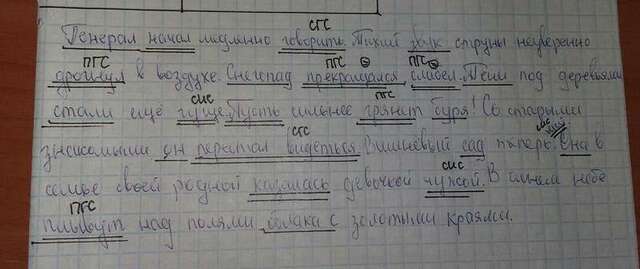 СГС
Генерал начал медленно говорить. Тихий звук струны неуверенно
ПГС ПГС ПГС
дрогнул в воздухе. Снегопад прекращался, слабел. Тени под деревьями
СИС ПГС
стали ещё гуще. Пусть сильнее грянет буря! Со старыми
СГС СИС
знакомыми он перестал видеться. Вишнёвый сад теперь. Она в
СИС
семье своей родной казалась девочкой чужой. В синем небе
ПГС
плывут над полями облака с золотыми краями.